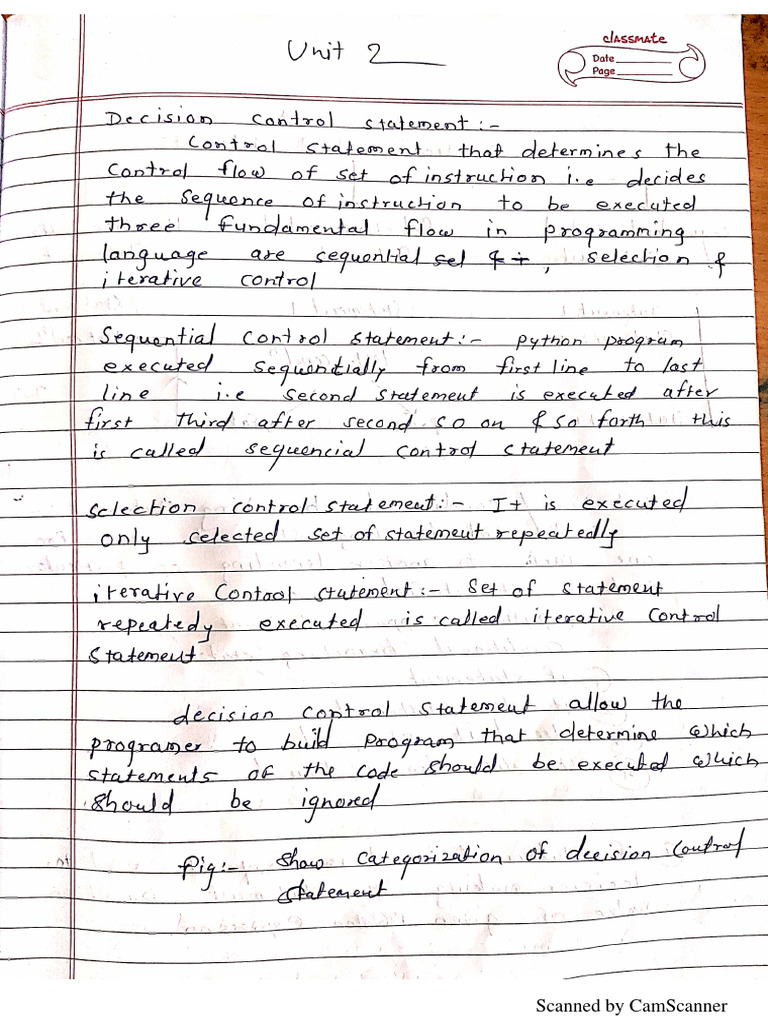 classmate
Date
Page
Unit 2
Decision control statement :-
Control statement that determines the
control flow of set of instruction i.e decides
the sequence of instruction to be executed
three fundamental flow in programming
language are sequential sel & it, selection &
iterative control
Sequential control statement :- python program
executed sequentially from first line to last
line i.e second statement is executed after
first third after second so on & so forth this
is called sequencial control statement
selection control statement :- It is executed
only selected set of statement repeatedly
iterative Control statement :- Set of statement
repeatedy executed is called iterative control
statement
decision control statement allow the
programer to build program that determine which
statements of the code should be executed which
should be ignored
fig :- show categorization of decision control
statement
Scanned by CamScanner